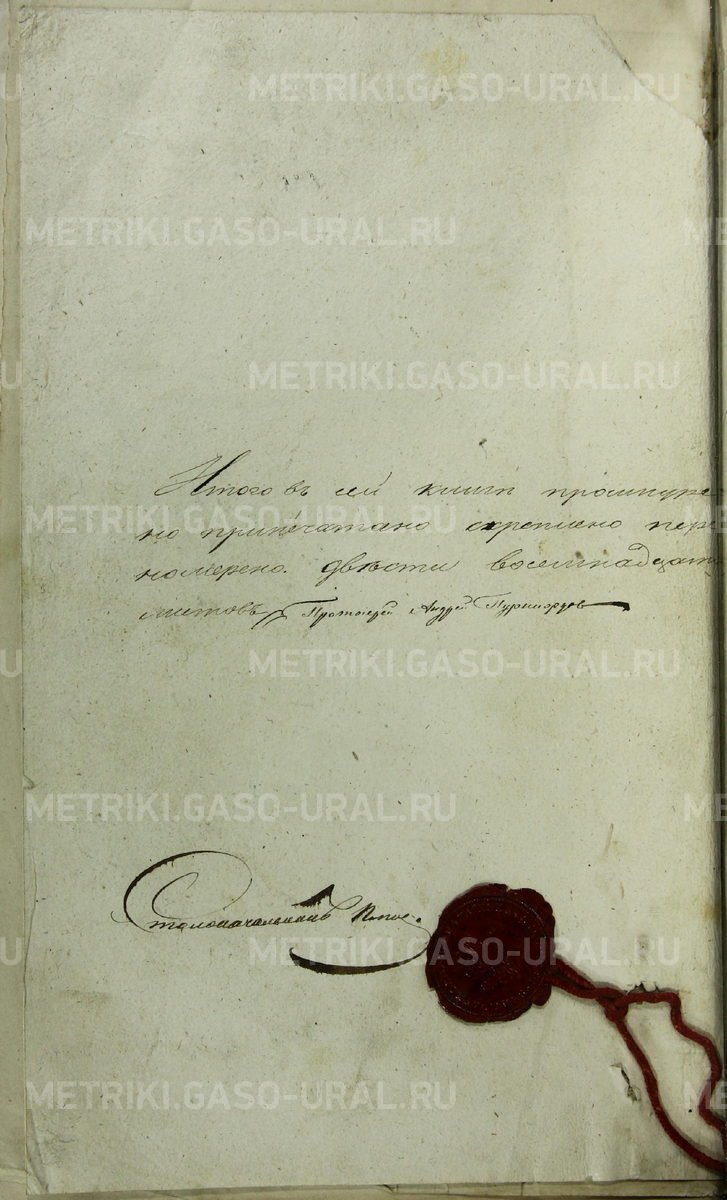 METRIKI.GASO-URAL.RU
METRIKI.GASO-URAL.RU
METRIKI.GASO-URAL.RU
Итого въ сей книгѣ прошнуре
но припечатано скреплено пере
номерено. двѣсти восемнадцать
листовъ Протоіерей Андрей
METRIKI.GASO-URAL.RU
METRIKI.GASO-URAL.RU
METRIKI.GASO-URAL.RU
Столоначальникъ
METRIKI.GASO-URAL.RU
METRIKI.GASO-URAL.RU